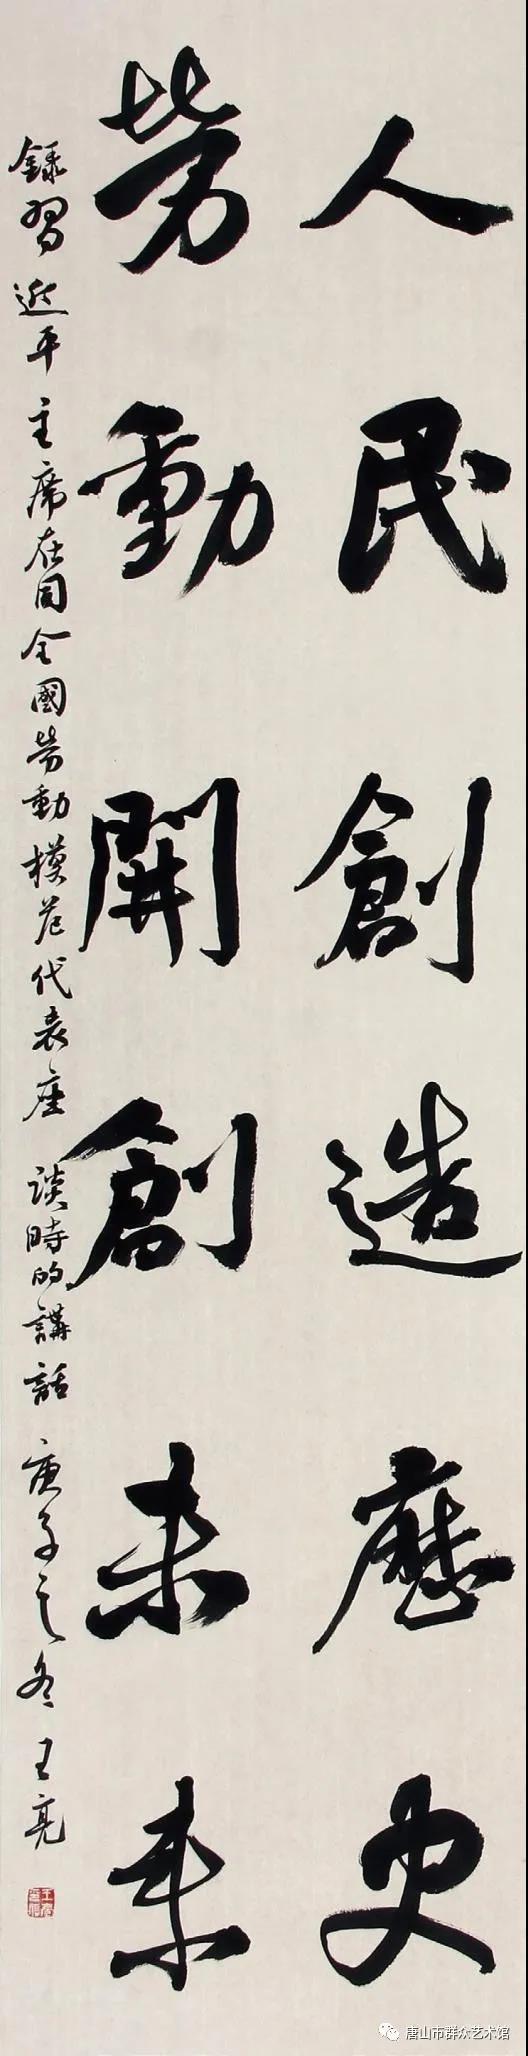 人民創造歷史
勞動開創未来
録習近平主席在同全國勞動模范代表座談時的講話 庚子之冬 王亮
唐山市群众艺术馆